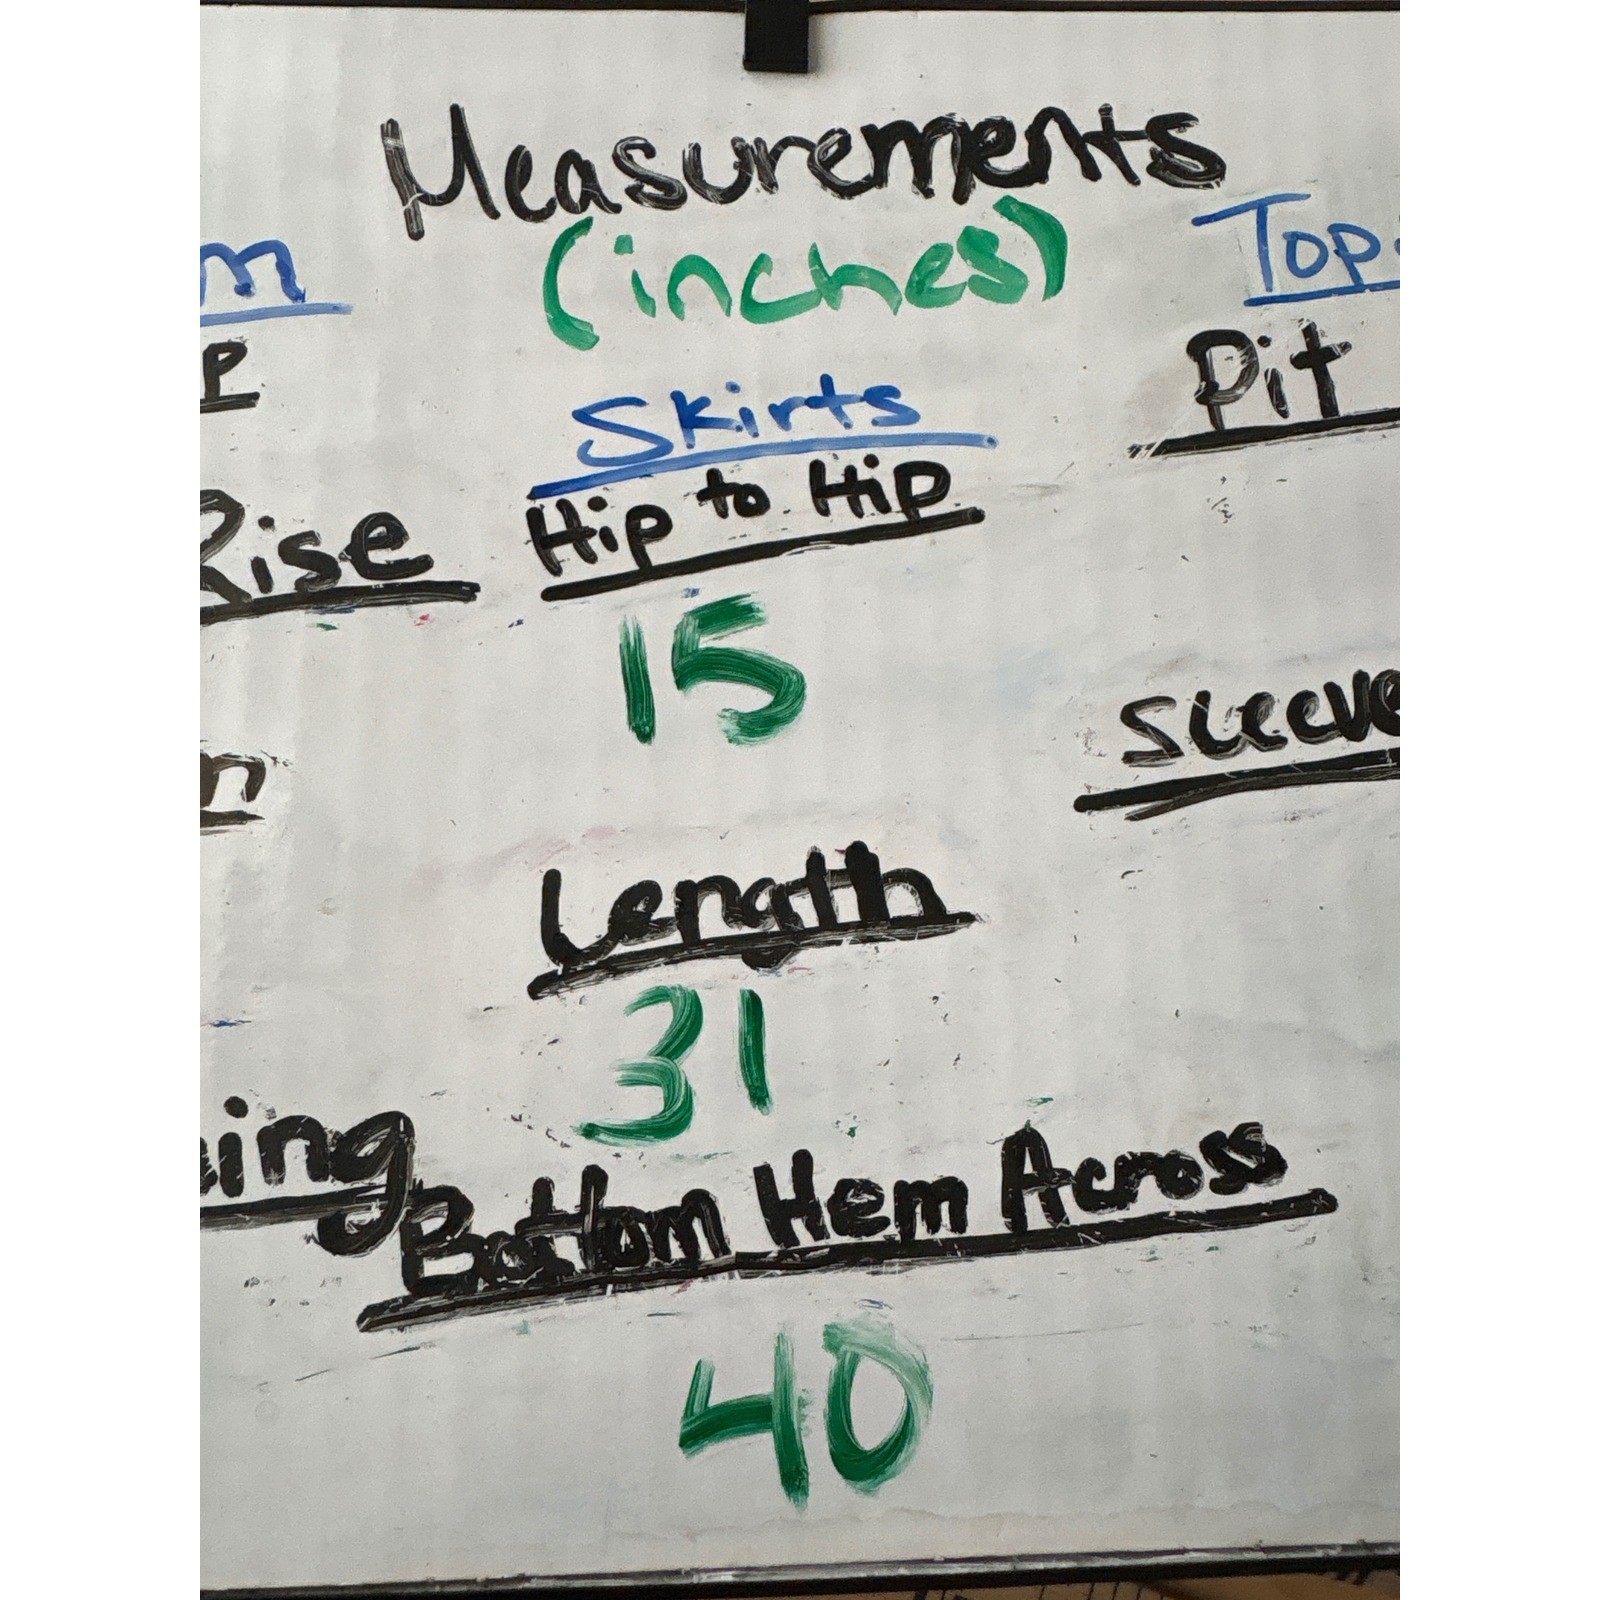 Measurements
(inches)
Skirts
Hip to Hip
15
Length
31
Bottom Hem Across
40
Rise
Top
Pit
Sleeve